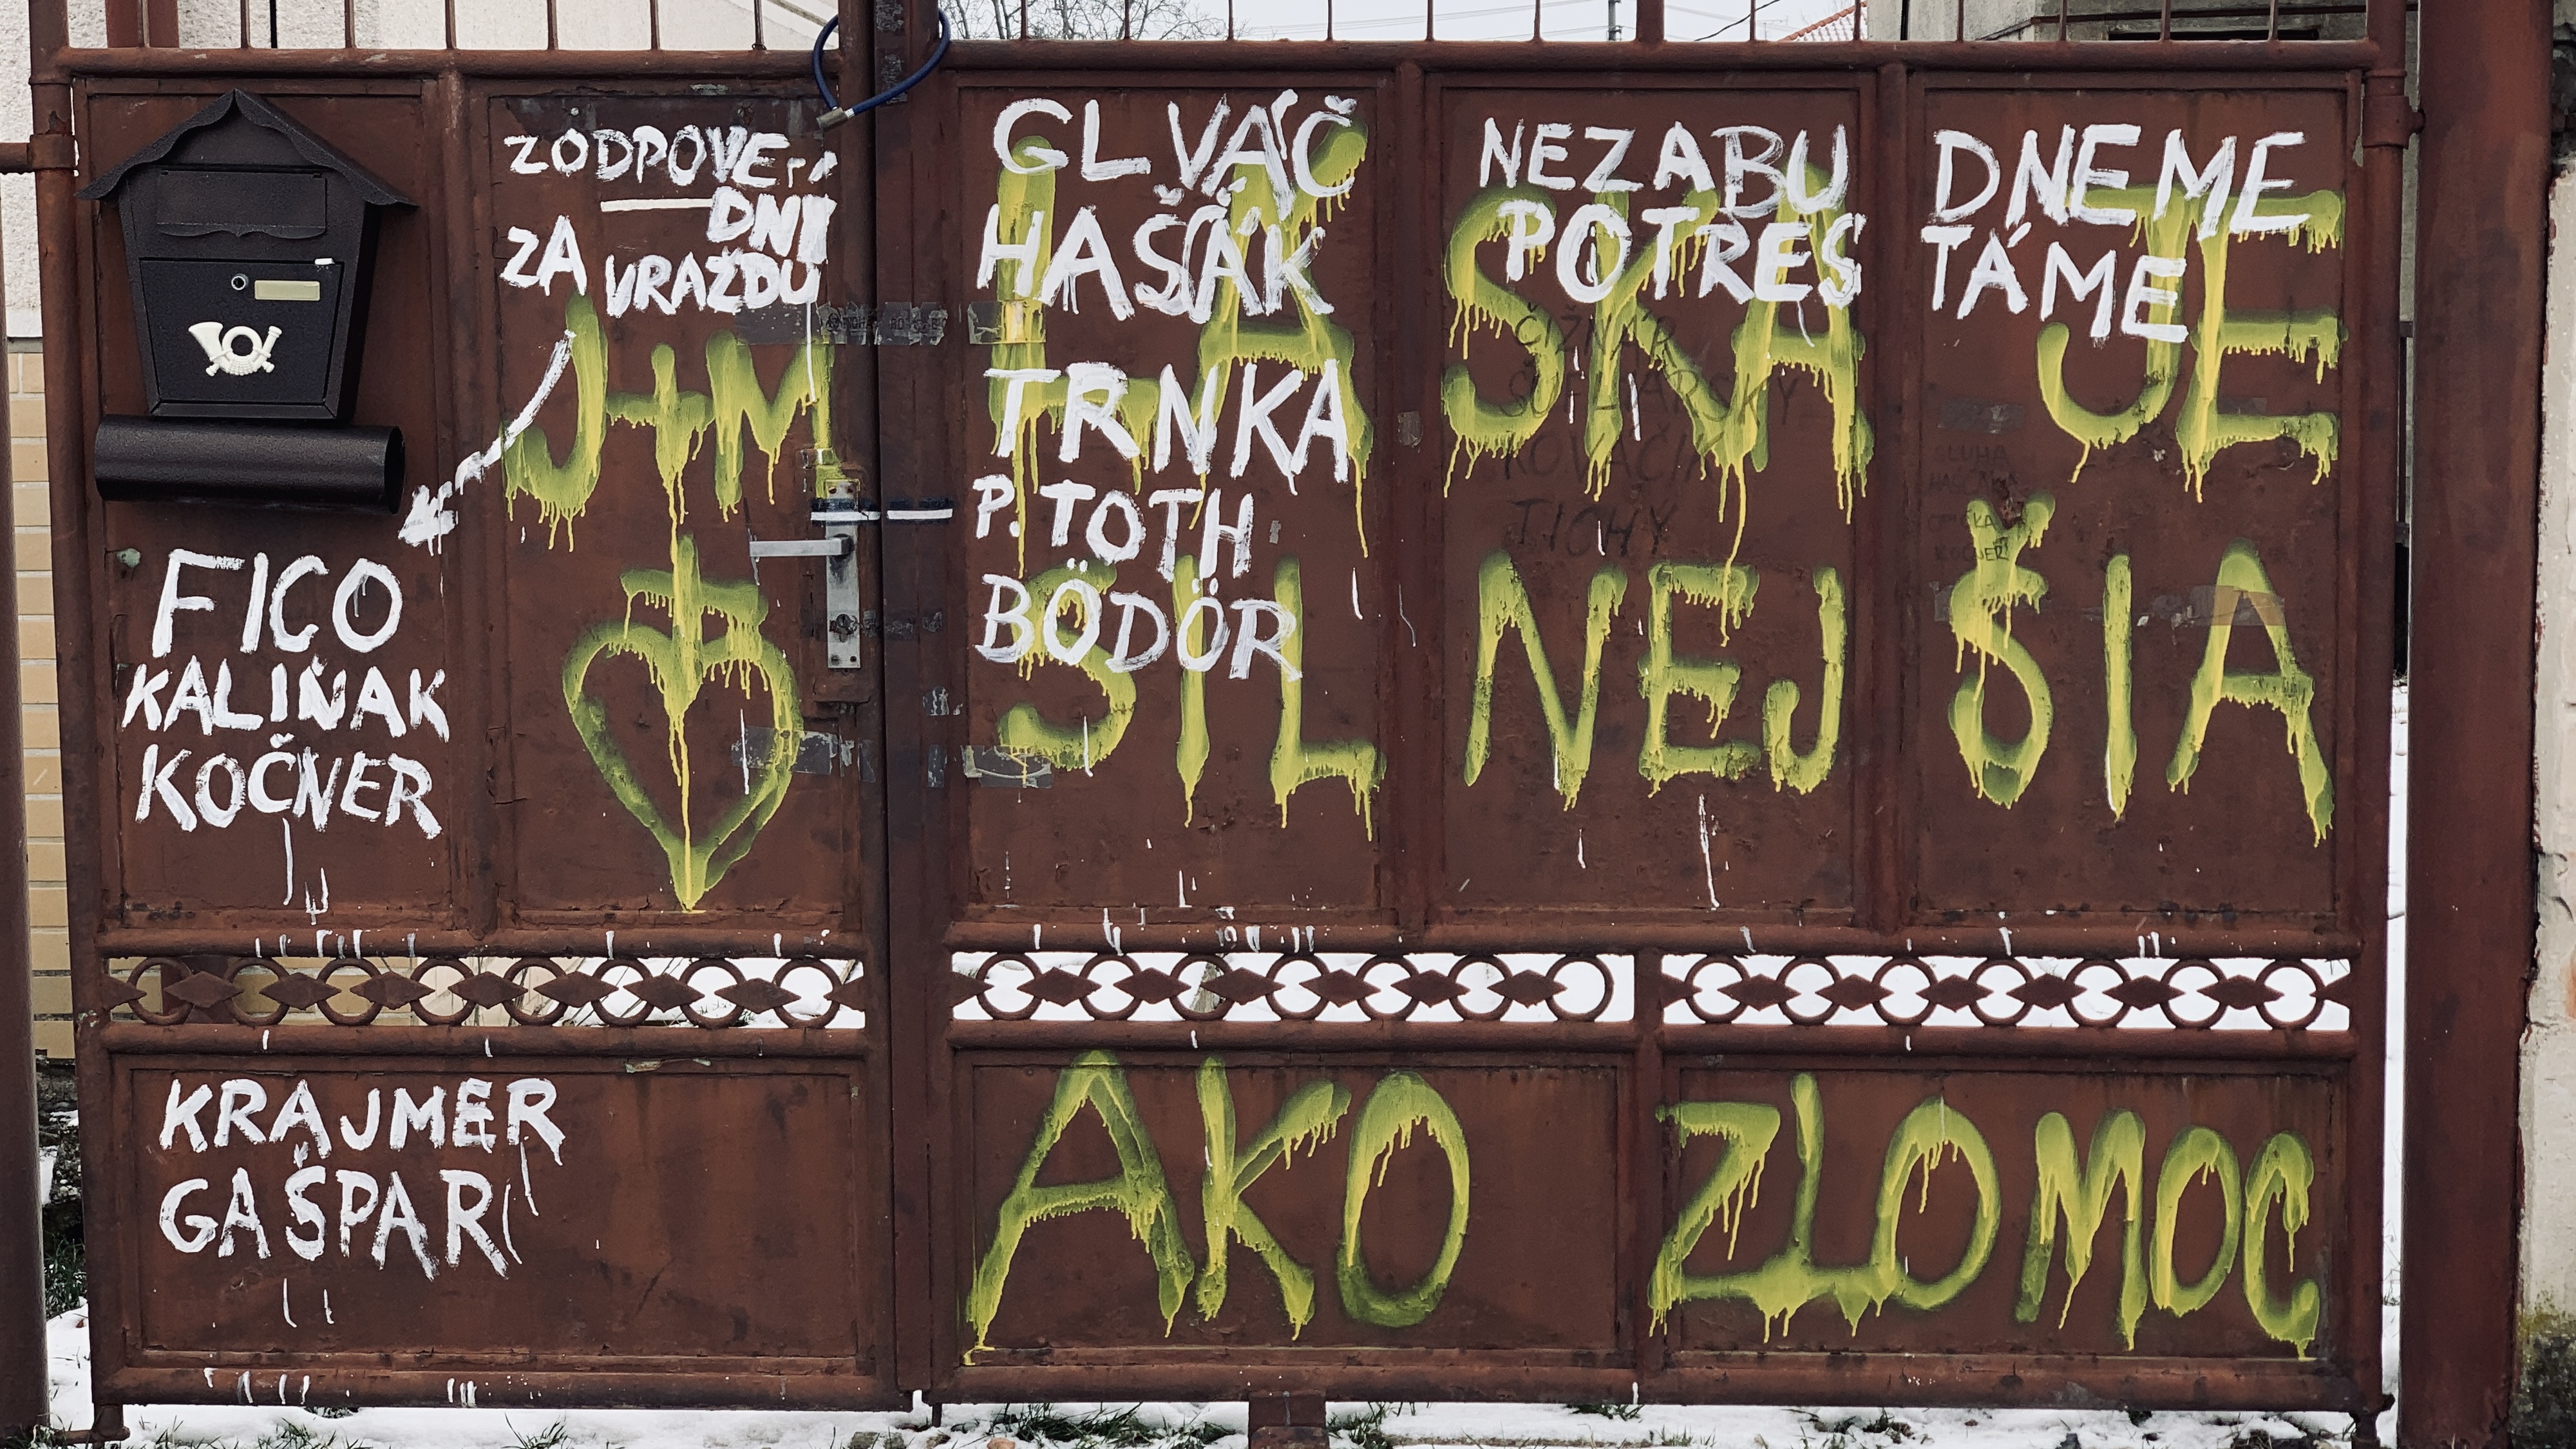 ZODPOVE-
DNÍ
ZA VRAŽDU
J+M
FICO
KALIŇAK
KOČNER
KRAJMER
GAŠPAR
GLVÁČ
HAŠÁK
TRNKA
P. TOTH
BÖDÖR
NEZABUDNEME
POTRESTÁME
LÁSKA JE
SILNEJŠIA
AKO ZLO MOC
ČIŽNÁR
KOVAČIK
TICHY
SLUHA
KOČNER